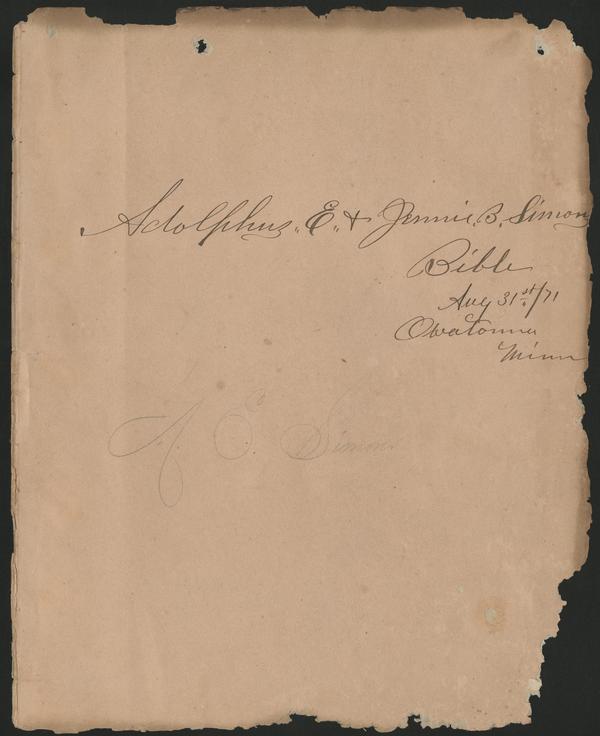 Adolphus. E. & Jennie. B. Simon
Bible
Aug 31st/71
Owatonna
Minn
A. E. Simon